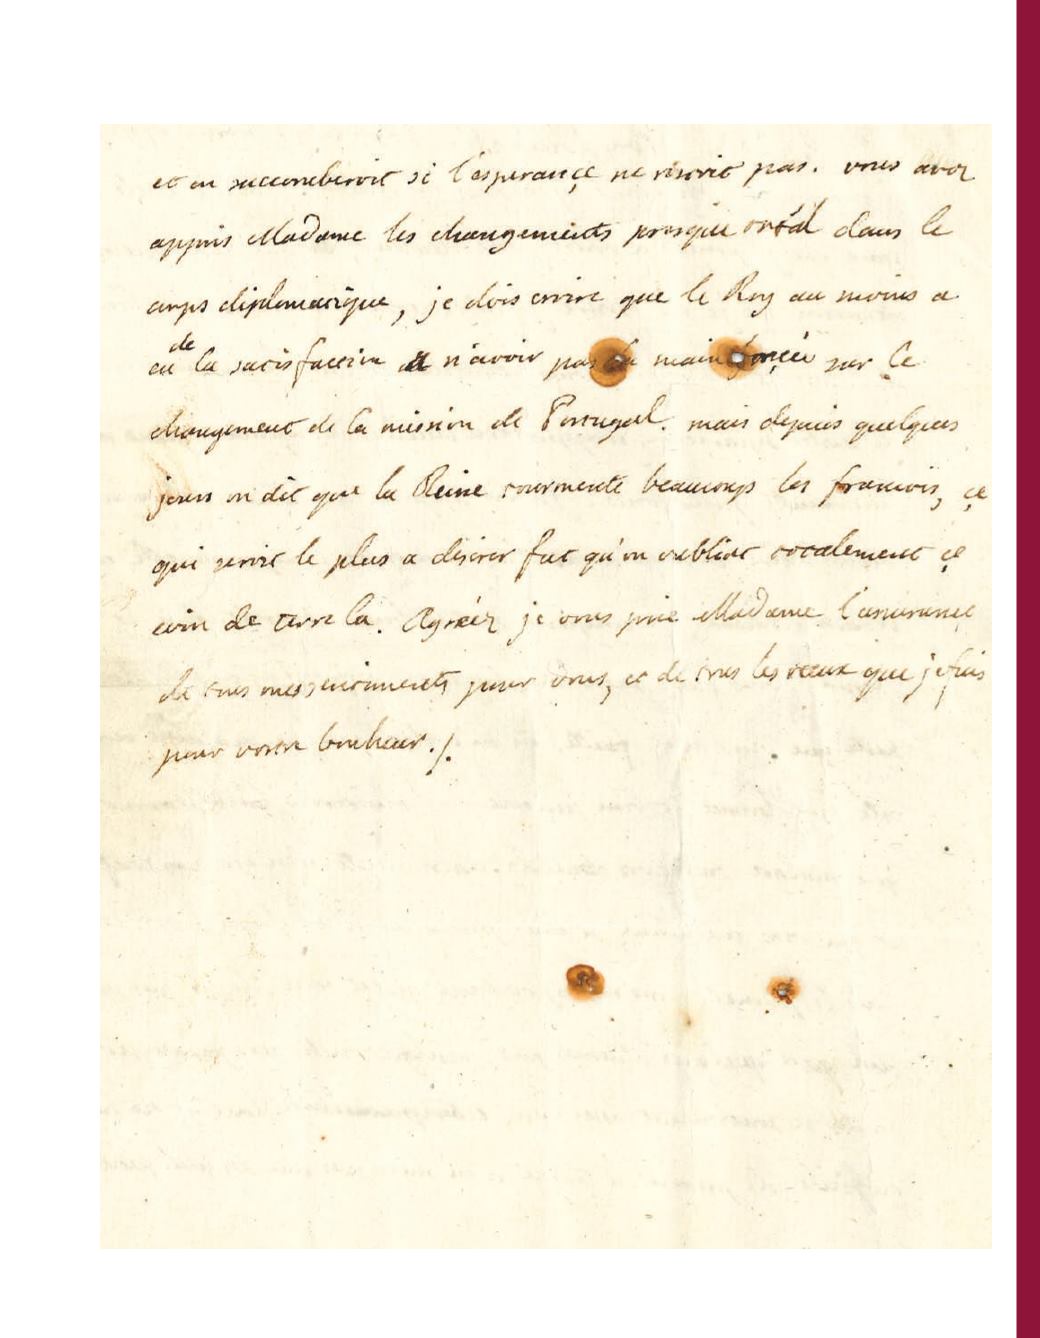 et on succomberoit si l'esperançe ne restoit pas. vous avez
appris Madame les changements presque total dans le
corps diplomatique, je dois croire que le Roy au moins a
eu de la satisfaction a n'avoir pas la main forçée sur le
changement de la mission de Portugal. mais depuis quelques
jours on dit que la Reine tourmente beaucoup les francois, çe
qui seroit le plus a désirer fut qu'on oubliat totalement çe
coin de terre la. Agréez je vous prie Madame l'assurance
de tous mes sentiments pour vous, et de tous les voeux que je fais
pour votre bonheur./.